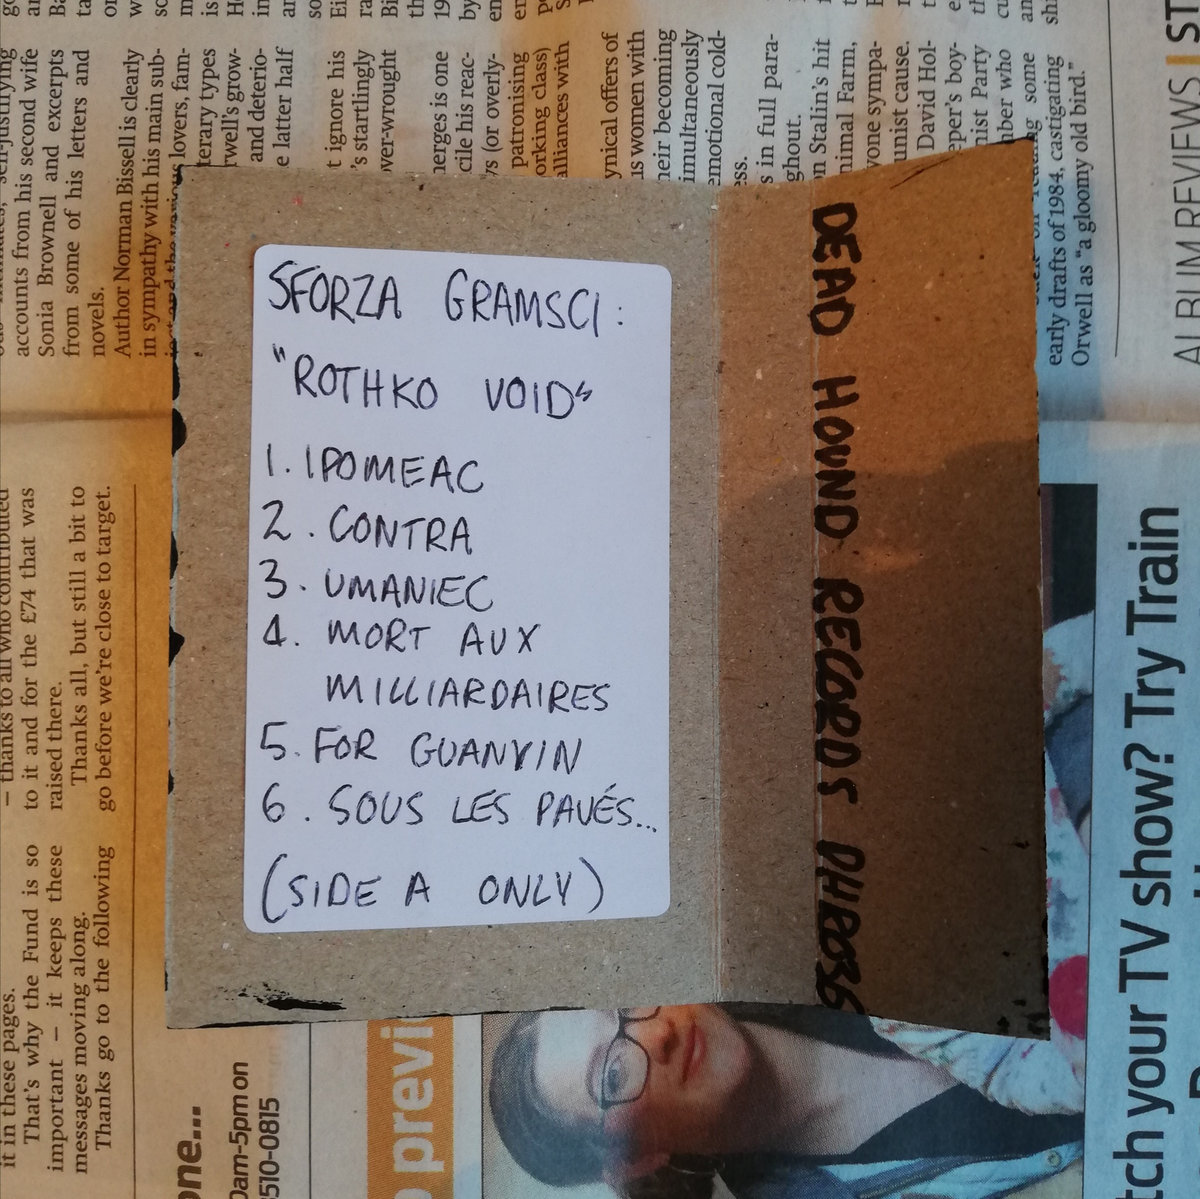 SFORZA GRAMSCI:
"ROTHKO VOID"
1. IPOMEAC
2. CONTRA
3. UMANIEC
4. MORT AUX
MILLIARDAIRES
5. FOR GUANYIN
6. SOUS LES PAVÉS...
(SIDE A ONLY)
DEAD HOUND RECORDS DHR036
accounts from his second wife
Sonia Brownell and excerpts
from some of his letters and
novels.
Author Norman Bissell is clearly
in sympathy with his main sub-
lovers, fam-
terary types
rwell's grow-
and deterio-
e latter half
t ignore his
's startlingly
over-wrought
nerges is one
cile his reac-
ys (or overly-
patronising
orking class)
alliances with
ynical offers of
us women with
heir becoming
simultaneously
emotional cold-
ess.
s in full para-
ghout.
on Stalin's hit
nimal Farm,
yone sympa-
unist cause.
David Hol-
eper's boy-
nist Party
mber who
some
early drafts of 1984, castigating
Orwell as "a gloomy old bird."
ALBUM REVIEWS | ST
– thanks to all who contributed
to it and for the £74 that was
raised there.
Thanks all, but still a bit to
go before we're close to target.
it in these pages.
That's why the Fund is so
important – it keeps these
messages moving along.
Thanks go to the following
one...
0am-5pm on
8510-0815
previ
tch your TV show? Try Train